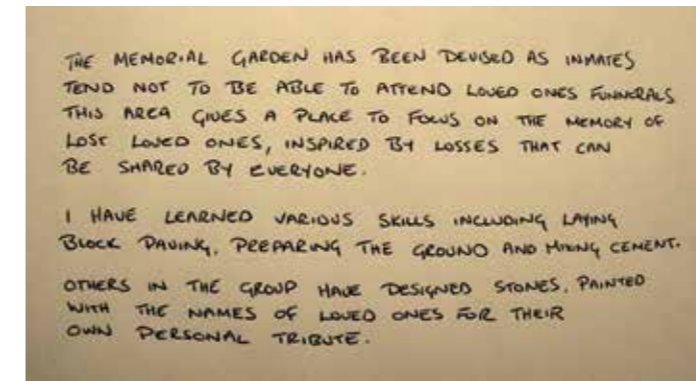 THE MEMORIAL GARDEN HAS BEEN DEVISED AS INMATES
TEND NOT TO BE ABLE TO ATTEND LOVED ONES FUNNERALS
THIS AREA GIVES A PLACE TO FOCUS ON THE MEMORY OF
LOST LOVED ONES, INSPIRED BY LOSSES THAT CAN
BE SHARED BY EVERYONE.
I HAVE LEARNED VARIOUS SKILLS INCLUDING LAYING
BLOCK PAVING, PREPARING THE GROUND AND MIXING CEMENT.
OTHERS IN THE GROUP HAVE DESIGNED STONES, PAINTED
WITH THE NAMES OF LOVED ONES FOR THEIR
OWN PERSONAL TRIBUTE.